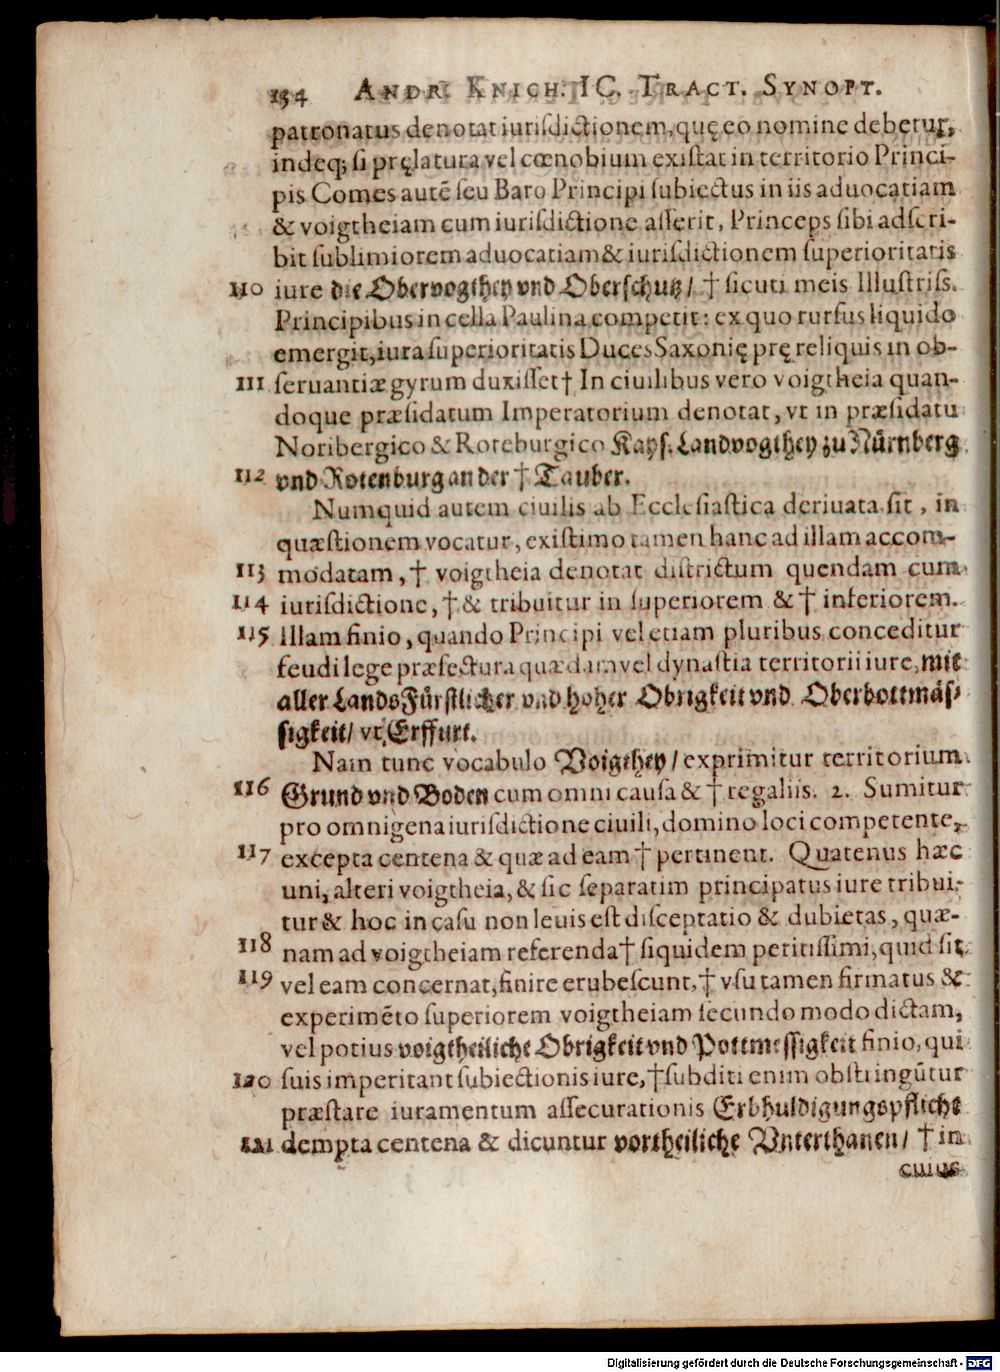 154 ANDR. KNICH. IC. TRACT. SYNOPT.
patronatus denotat iurisdictionem, quę eo nomine debetur,
indeq; si pręlatura vel cœnobium existat in territorio Princi-
pis Comes autē seu Baro Principi subiectus in iis aduocatiam
& voigtheiam cum iurisdictione asserit, Princeps sibi adscri-
bit sublimiorem aduocatiam & iurisdictionem superioritatis
110 iure die Obervogthey vnd Oberschutz/ † sicuti meis Illustriss.
Principibus in cella Paulina competit: ex quo rursus liquido
emergit, iura superioritatis Duces Saxonię prę reliquis in ob-
111 seruantiæ gyrum duxisset † In ciuilibus vero voigtheia quan-
doque præsidatum Imperatorium denotat, vt in præsidatu
Noribergico & Roteburgico Kays. Landvogthey zu Nürnberg
112 vnd Rotenburg an der † Tauber.
Numquid autem ciuilis ab Ecclesiastica deriuata sit, in
quæstionem vocatur, existimo tamen hanc ad illam accom-
113 modatam, † voigtheia denotat districtum quendam cum
114 iurisdictione, † & tribuitur in superiorem & † inferiorem.
115 Illam finio, quando Principi vel etiam pluribus conceditur
feudi lege præfectura quædam vel dynastia territorii iure, mit
aller LandsFürstlicher vnd hoher Obrigkeit vnd Oberbottmäs-
sigkeit/ vt, Erffurt.
Nam tunc vocabulo Voigthey/ exprimitur territorium
116 Grund vnd Boden cum omni causa & † regaliis. 2. Sumitur
pro omnigena iurisdictione ciuili, domino loci competente,
117 excepta centena & quæ ad eam † pertinent. Quatenus hæc
uni, alteri voigtheia, & sic separatim principatus iure tribui-
tur & hoc in casu non leuis est disceptatio & dubietas, quæ-
118 nam ad voigtheiam referenda † siquidem peritissimi, quid sit
119 vel eam concernat, finire erubescunt, † vsu tamen firmatus &
experimēto superiorem voigtheiam secundo modo dictam,
vel potius voigtheiliche Obrigkeit vnd Pottmessigkeit finio, qui
120 suis imperitant subiectionis iure, † subditi enim obstringūtur
præstare iuramentum assecurationis Erbhuldigungspflicht
121 dempta centena & dicuntur vortheiliche Vnterthanen/ † in
cuius
Digitalisierung gefördert durch die Deutsche Forschungsgemeinschaft - DFG